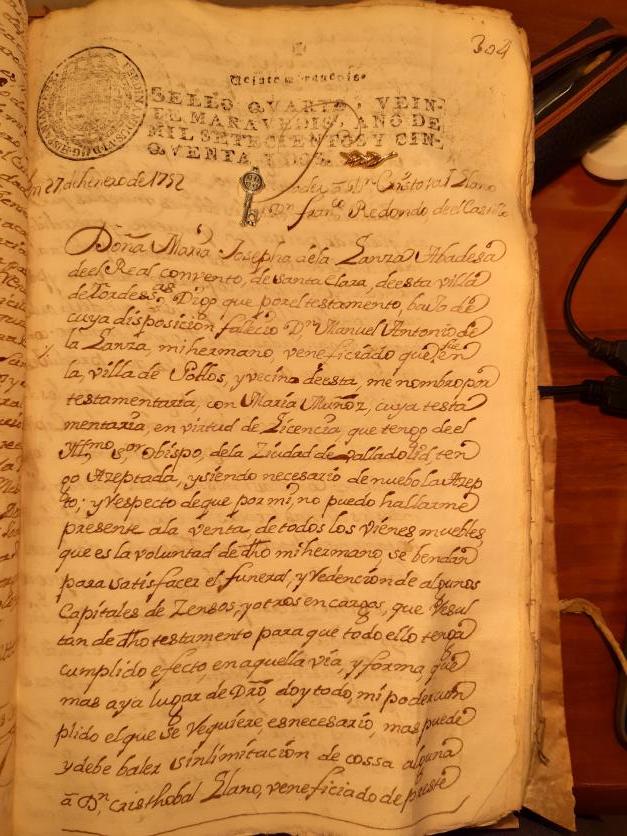 304
Veinte maravedis.
SELLO QVARTO, VEIN-
TE MARAVEDIS, AÑO DE
MIL SETECIENTOS Y CIN-
QVENTA Y DOS.
en 27 de henero de 1752
Poder Dn. Cristoval Llano
y Dn. franco. Redondo de el Castillo
Doña Maria Josepha de la Lanza Abadesa
de el Real convento, de santa Clara, de esta villa
de Tordesas. Digo, que por el testamento, bajo de
cuya disposición falecio Dn. Manuel Antonio de
la Lanza, mi hermano, veneficiado que fue en
la, villa de Pollos, y vecino de esta, me nombro por
testamentaria, con Maria Muñoz, cuya testa
mentaria, en virtud de Licencia, que tengo de el
Illmo. Sor. obispo, de la Ziudad de valladolid, ten
go Azeptada, y siendo necesario de nuebo la Azep
to; y Respecto de que por mi, no puedo hallarme
presente a la venta, de todos los vienes muebles,
que es la voluntad de dho mi hermano, se bendan
para satisfacer el funeral, y Redencion de algunos
Capitales de Zensos, y otros encargos, que Resul
tan de dho testamento para que todo ello tenga
cumplido efecto, en aquella via, y forma, que
mas aya lugar de Dro, doy todo, mi poder cum
plido el que se Requiere, es necesario, mas puede
y debe baler sin limitacion de cossa alguna
a Dn. Cristhobal Llano, veneficiado de preste